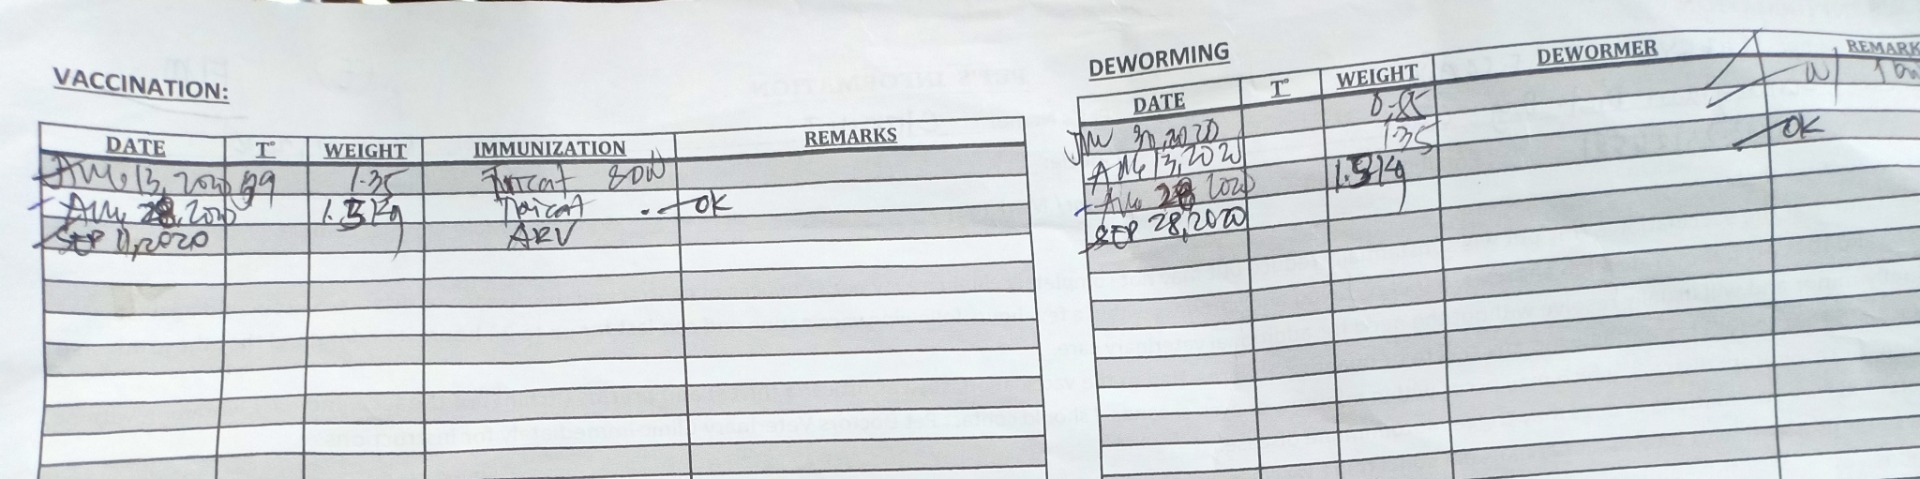 VACCINATION:
DATE T° WEIGHT IMMUNIZATION REMARKS
AUG 13, 2020 39 1.35 Tricat
AUG 28, 2020 1.5kg Tricat OK
SEP 11, 2020 ARV
DEWORMING
DATE T° WEIGHT DEWORMER REMARK
30, 2020 0.85
AUG 13, 2020 1.35 OK
AUG 28 2020 1.5kg
SEP 28, 2020